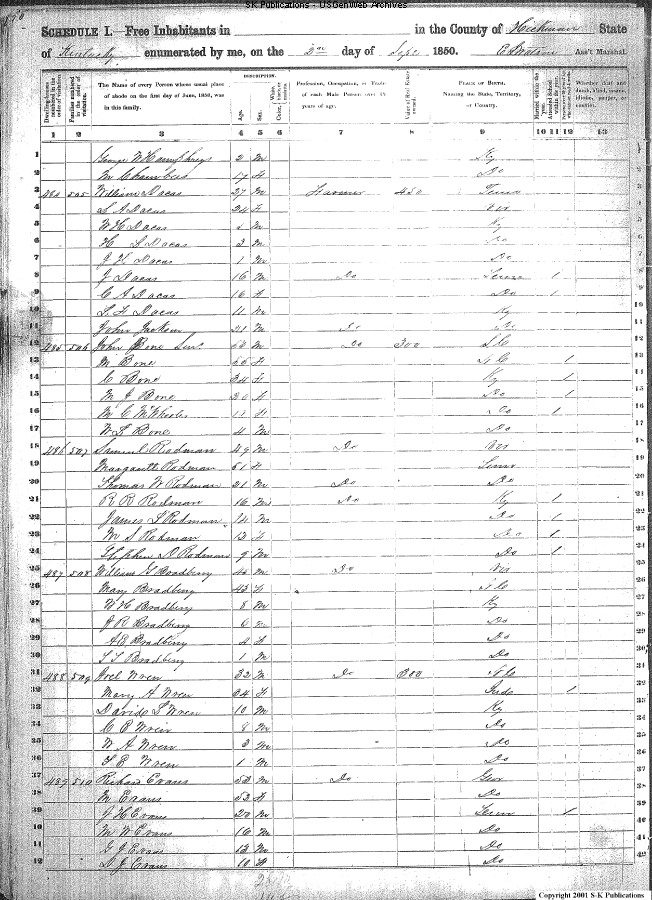 SK Publications - USGenWeb Archives
SCHEDULE I.—Free Inhabitants in in the County of Hickman State
of Kentucky enumerated by me, on the 2nd day of Sept 1850. Ass't Marshal.
Dwelling-houses numbered in the order of visitation.
Families numbered in the order of visitation.
The Name of every Person whose usual place of abode on the first day of June, 1850, was in this family.
DESCRIPTION.
Age.
Sex.
Color
Profession, Occupation, or Trade of each Male Person over 15 years of age.
Value of Real Estate owned.
PLACE OF BIRTH. Naming the State, Territory, or Country.
Married within the year.
Attended School within the year.
Whether deaf and dumb, blind, insane, idiotic, pauper, or convict.
1 2 3 4 5 6 7 8 9 10 11 12 13
1 George W Humphreys 2 M Ky
2 M Chambers 17 F Do
3 484 505 William Dacas 27 M Farmer 450 Tenn
4 S A Dacas 24 F
5 W H Dacas M Ky
6 H S Dacas 3 M Do
7 J K Dacas 1 M Do
8 J Dacas 16 M Do Tenn 1
9 C A Dacas 16 F Do 1
10 S F Dacas 11 M Ky
11 John Jackson 21 M Do
12 485 506 John Bone Sen. M Do 300 S C
13 M Bone 55 F S C 1
14 C Bone 34 F Ky 1
15 M J Bone 20 F Do 1
16 M C McWhorter F Do 1
17 W S Bone 4 M Do
18 486 507 Samuel Rodman 49 M Do Vir
19 Margarette Rodman 51 F Tenn
20 Thomas W Rodman 21 M Do Do
21 R R Rodman 16 M Do Ky 1
22 James S Rodman 14 M Do 1
23 M S Rodman 12 F Do 1
24 Stephen D Rodman 9 M Do 1
25 487 508 William G Bradberry M Do Vir
26 Mary Bradberry 43 F S C
27 W H Bradberry 8 M Ky
28 J R Bradberry 6 M Do
29 A E Bradberry 4 F Do
30 S T Bradberry 1 M Do
31 488 509 Joel Wren 32 M Do 300 S C
32 Mary A Wren 34 F Inda 1
33 David S Wren 10 M Ky
34 C P Wren 8 M Do
35 W A Wren 3 M Do
36 T E Wren 1 M Do
37 489 510 Richard Evans 53 M Do Geo
38 M Evans 52 F Do
39 J H Evans 20 M Tenn 1
40 M W Evans 16 M Do
41 G J Evans 13 M Do
42 D J Evans 10 F Do
Copyright 2001 S-K Publications